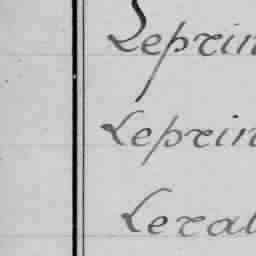 Leprin
Leprin
Leral